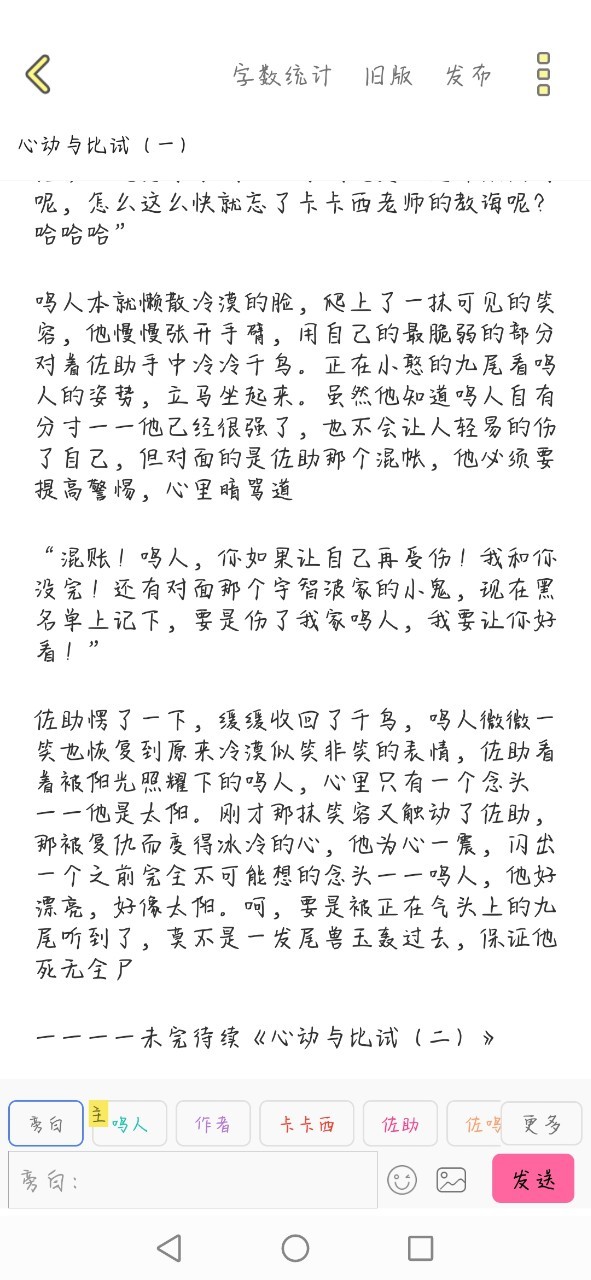 字数统计 旧版 发布
心动与比试（一）
呢，怎么这么快就忘了卡卡西老师的教诲呢？
哈哈哈”
鸣人本就懒散冷漠的脸，爬上了一抹可见的笑
容，他慢慢张开手臂，用自己的最脆弱的部分
对着佐助手中冷冷千鸟。正在小憨的九尾看鸣
人的姿势，立马坐起来。虽然他知道鸣人自有
分寸一一他已经很强了，也不会让人轻易的伤
了自己，但对面的是佐助那个混帐，他必须要
提高警惕，心里暗骂道
“混账！鸣人，你如果让自己再受伤！我和你
没完！还有对面那个宇智波家的小鬼，现在黑
名单上记下，要是伤了我家鸣人，我要让你好
看！”
佐助愣了一下，缓缓收回了千鸟，鸣人微微一
笑也恢复到原来冷漠似笑非笑的表情，佐助看
着被阳光照耀下的鸣人，心里只有一个念头
一一他是太阳。刚才那抹笑容又触动了佐助，
那被复仇而变得冰冷的心，他为心一震，闪出
一个之前完全不可能想的念头一一鸣人，他好
漂亮，好像太阳。呵，要是被正在气头上的九
尾听到了，莫不是一发尾兽玉轰过去，保证他
死无全尸
一一一一未完待续《心动与比试（二）》
旁白 主 鸣人 作者 卡卡西 佐助 佐鸣 更多
旁白： 发送